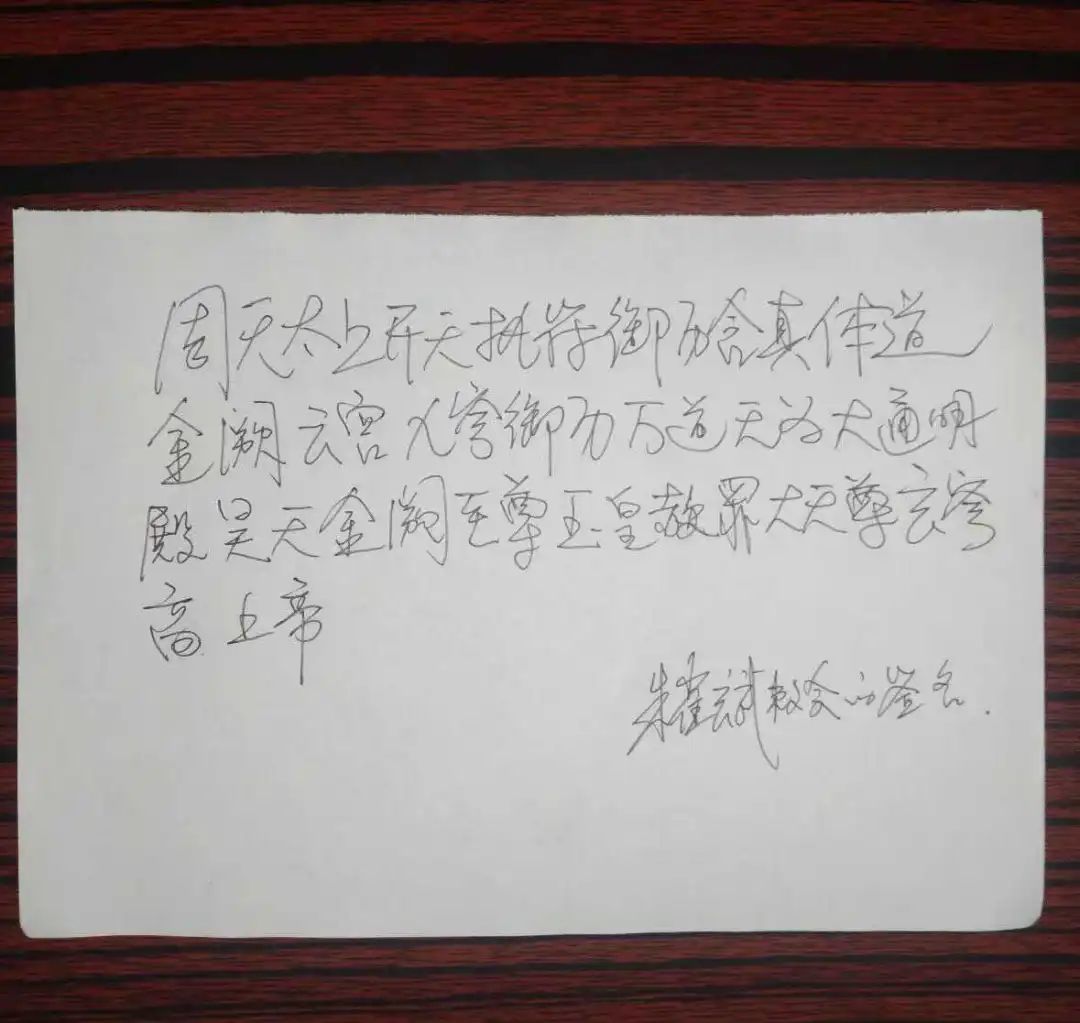 周天太上开天执符御历含真体道
金阙云宫九穹御历万道无为大通明
殿昊天金阙至尊玉皇赦罪大天尊玄穹
高上帝
朱云斌教会的签名.